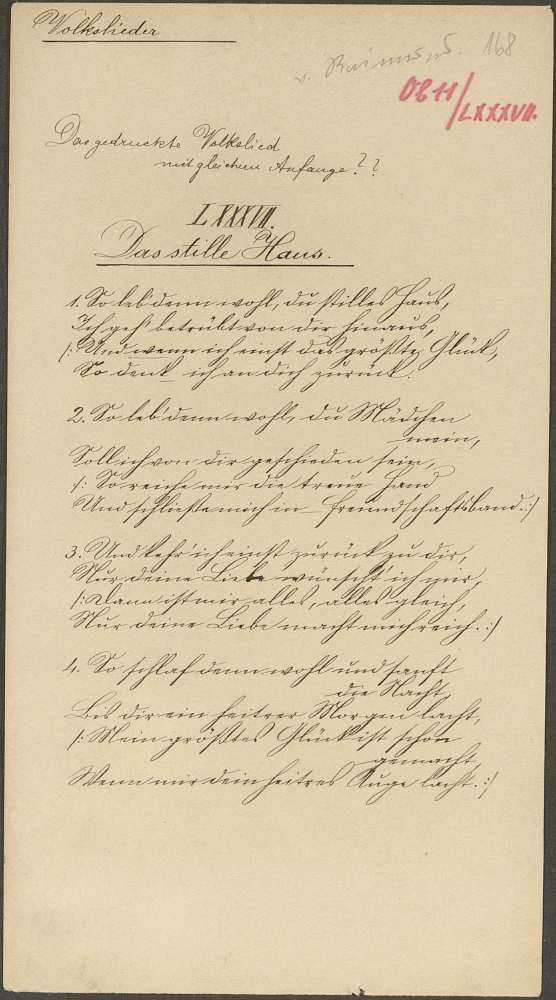 Volkslieder
168
OB 11/LXXXVII.
Das gedruckte Volkslied
mit gleichem Anfange??
LXXXVII.
Das stille Haus.
1. So leb' denn wohl, du stilles Haus,
Ich geh' betrübt von dir hinaus,
/: Und wenn ich einst das größte Glück,
So denk ich an dich zurück.
2. So leb' denn wohl, du Mädchen
mein,
Soll ich von dir geschieden sein,
/: So reiche mir die treue Hand
Und schließe mich in Freundschaftsband. :/
3. Und kehr' ich einst zurück zu dir,
Nur deine Liebe wünscht' ich mir,
/: Dann ist mir alles, alles gleich,
Nur deine Liebe macht mich reich. :/
4. So schlaf denn wohl und sanft
die Nacht,
Bis dir ein heitrer Morgen lacht,
/: Mein größtes Glück ist schon
gemacht,
Wenn mir dein heitres Auge lacht. :/